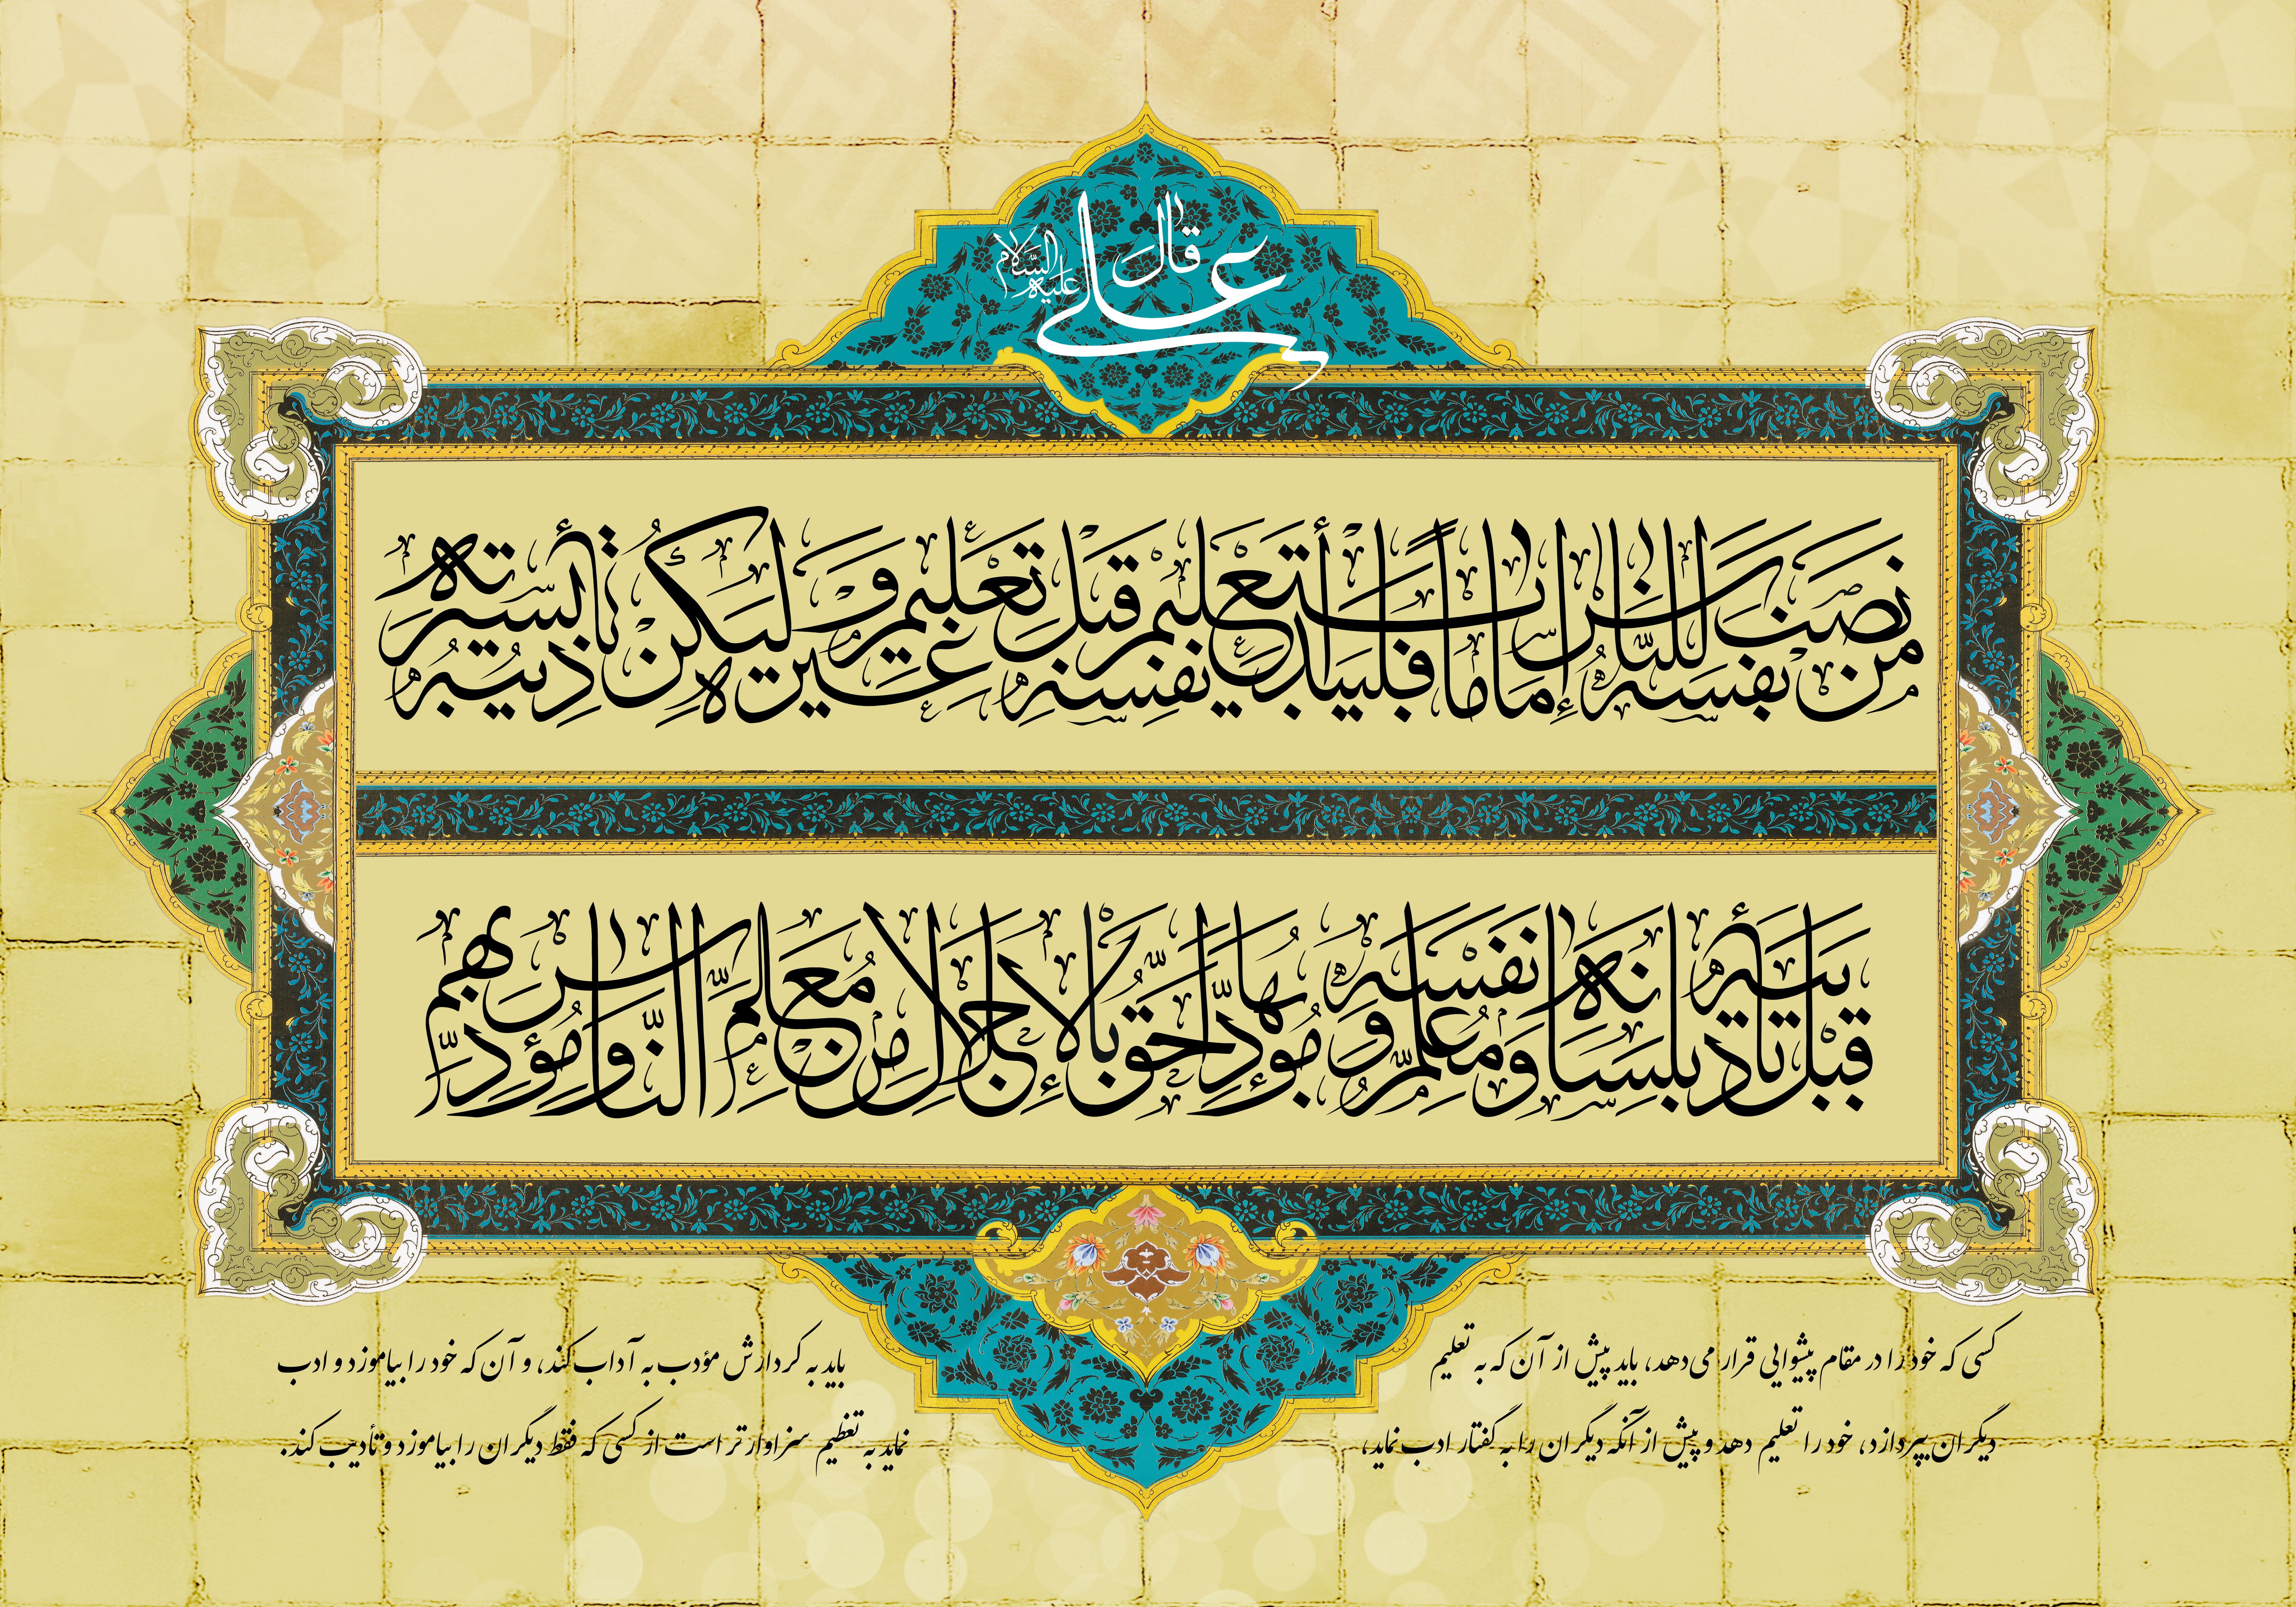 قال علی علیه السلام
من نصب نفسه للناس إماما فليبدأ بتعليم نفسه قبل تعليم غيره وليكن تأديبه بسيرته
قبل تأديبه بلسانه ومعلم نفسه ومؤدبها أحق بالإجلال من معلم الناس ومؤدبهم
کسی که خود را در مقام پیشوایی قرار می‌دهد، باید پیش از آن که به تعلیم
دیگران بپردازد، خود را تعلیم دهد و پیش از آنکه دیگران را به گفتار ادب نماید،
باید به کردارش مؤدب به آداب کند، و آن که خود را بیاموزد و ادب
نماید به تعظیم سزاوارتر است از کسی که فقط دیگران را بیاموزد و تأدیب کند.